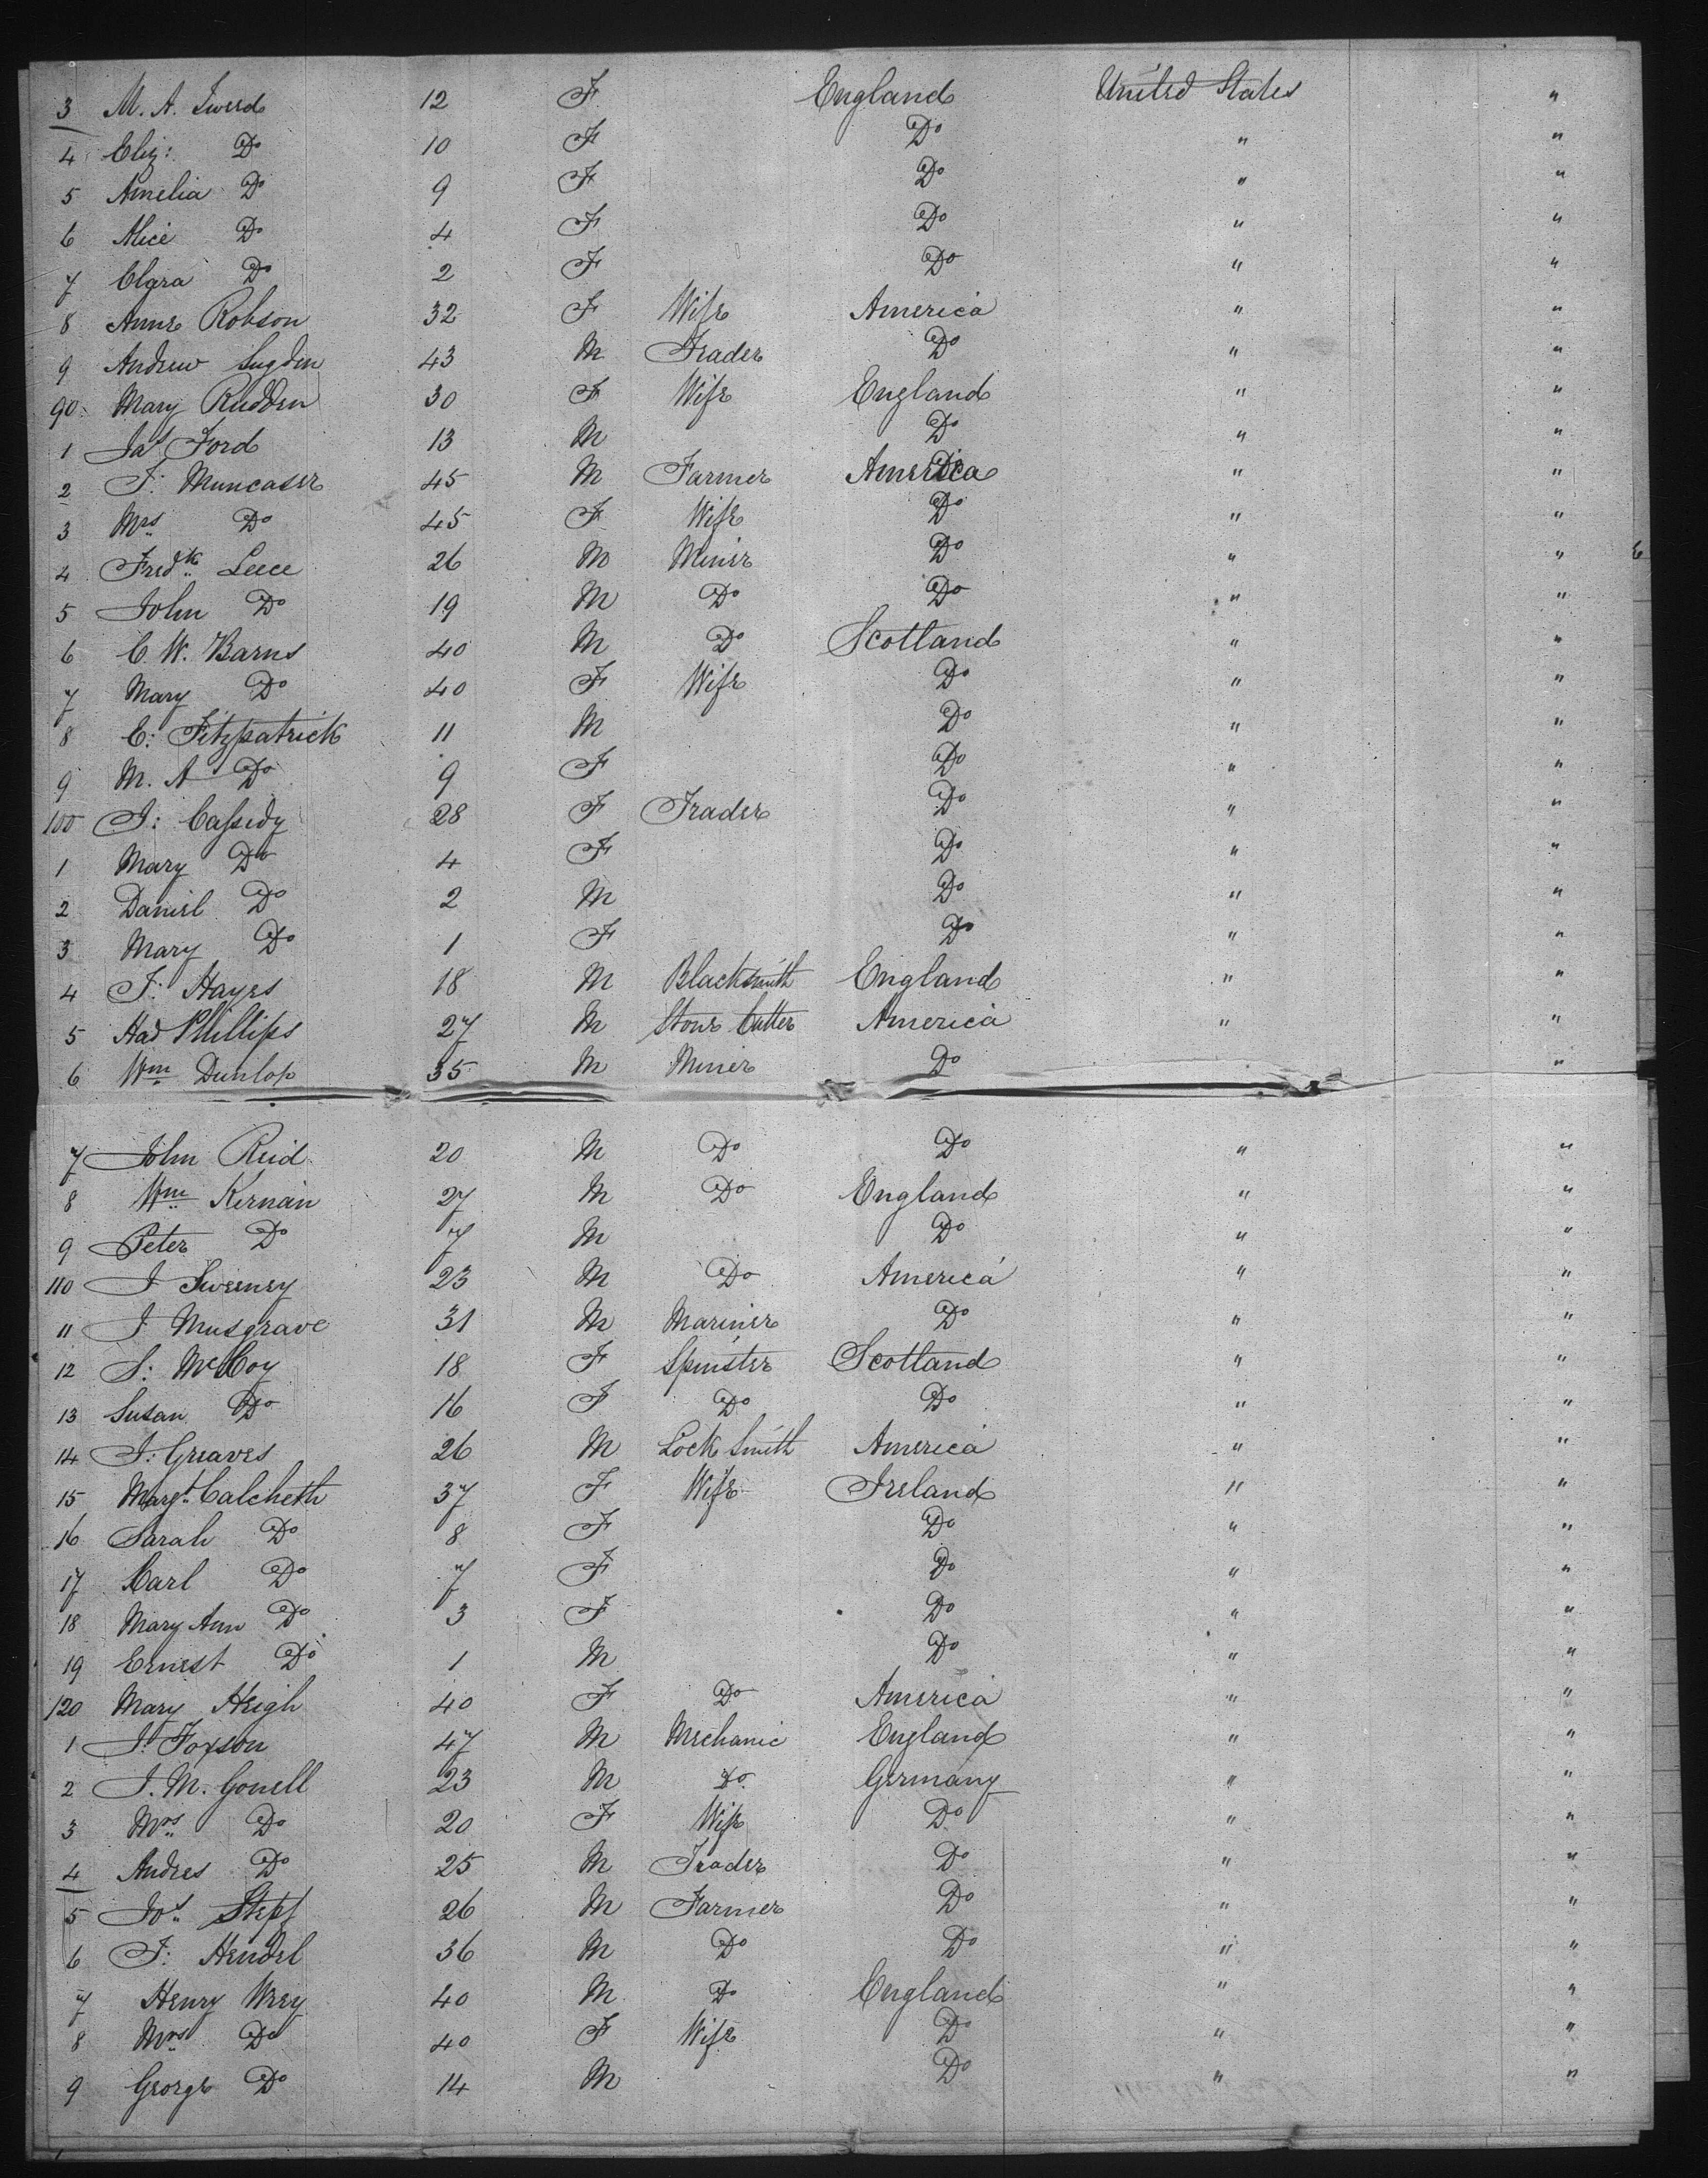 3 M. A. Tweed 12 F England United States "
4 Eliz: Do 10 F Do " "
5 Amelia Do 9 F Do " "
6 Alice Do 4 F Do " "
7 Clara Do 2 F Do " "
8 Anne Robson 32 F Wife America " "
9 Andrew Sugden 43 M Trader Do " "
90 Mary Rudden 30 F Wife England " "
1 Jas Ford 13 M Do " "
2 T: Muncaser 45 M Farmer America " "
3 Mrs Do 45 F Wife Do " "
4 Fredk Leece 26 M Miner Do " "
5 John Do 19 M Do Do " "
6 C. W. Barns 40 M Do Scotland " "
7 Mary Do 40 F Wife Do " "
8 C: Fitzpatrick 11 M Do " "
9 M. A Do 9 F Do " "
100 J: Cassidy 28 F Trader Do " "
1 Mary Do 4 F Do " "
2 Daniel Do 2 M Do " "
3 Mary Do 1 F Do " "
4 T: Hayes 18 M Blacksmith England " "
5 Had Phillips 27 M Stone Cutter America " "
6 Wm Dunlop 35 M Miner Do "
7 John Reid 20 M Do Do " "
8 Wm Kernan 27 M Do England " "
9 Peter Do 7 M Do " "
110 J Sweeney 23 M Do America " "
11 J Musgrave 31 M Mariner Do " "
12 S: McCoy 18 F Spinster Scotland " "
13 Susan Do 16 F Do Do " "
14 J: Greaves 26 M Lock Smith America " "
15 Margt Calcheth 37 F Wife Ireland " "
16 Sarah Do 8 F Do " "
17 Carl Do 7 F Do " "
18 Mary Ann Do 3 F Do " "
19 Ernest Do 1 M Do " "
120 Mary Heigh 40 F Do America " "
1 J. Foxson 47 M Mechanic England " "
2 J. M. Gouell 23 M Do Germany " "
3 Mrs Do 20 F Wife Do " "
4 Andres Do 25 M Trader Do " "
5 Jos Stepf 26 M Farmer Do " "
6 F: Hendel 36 M Do Do " "
7 Henry Wrey 40 M Do England " "
8 Mrs Do 40 F Wife Do " "
9 George Do 14 M Do " "